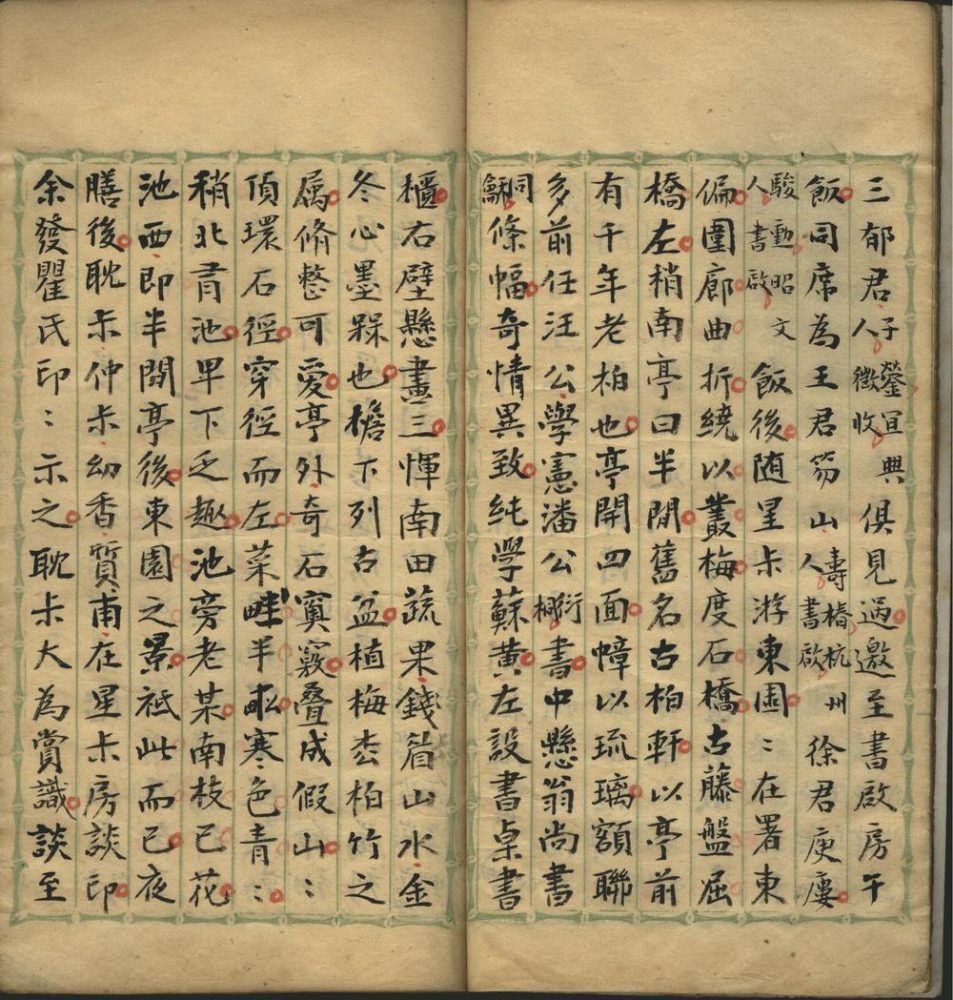 三郁君人子鎣宜興徵收俱見過邀至書啟房午
飯同席為王君笏山人壽椿杭州書啟徐君庚廔
人駿勳昭文書啟飯後随星朩游東園〻在署東
偏圍廊曲折繞以叢梅度石橋古藤盤屈
橋左稍南亭曰半閒舊名古柏軒以亭前
有千年老柏也亭開四面幛以琉璃額聯
多前任汪公學憲潘公衍桐書中懸翁尚書
同龢條幅奇情異致純學蘇黃左設書桌書
櫃右壁懸畫三惲南田蔬果錢眉山水金
冬心墨槑也檐下列古盆植梅枩柏竹之
属脩整可愛亭外奇石窦竅叠成假山〻
頂環石徑穿徑而左菜畦半畝寒色青〻
稍北有池卑下乏趣池旁老某南枝已花
池西即半閒亭後東園之景祗此而已夜
膳後耽朩仲朩幼香質甫在星朩房談印
余發瞿氏印〻示之耽朩大為賞識談至